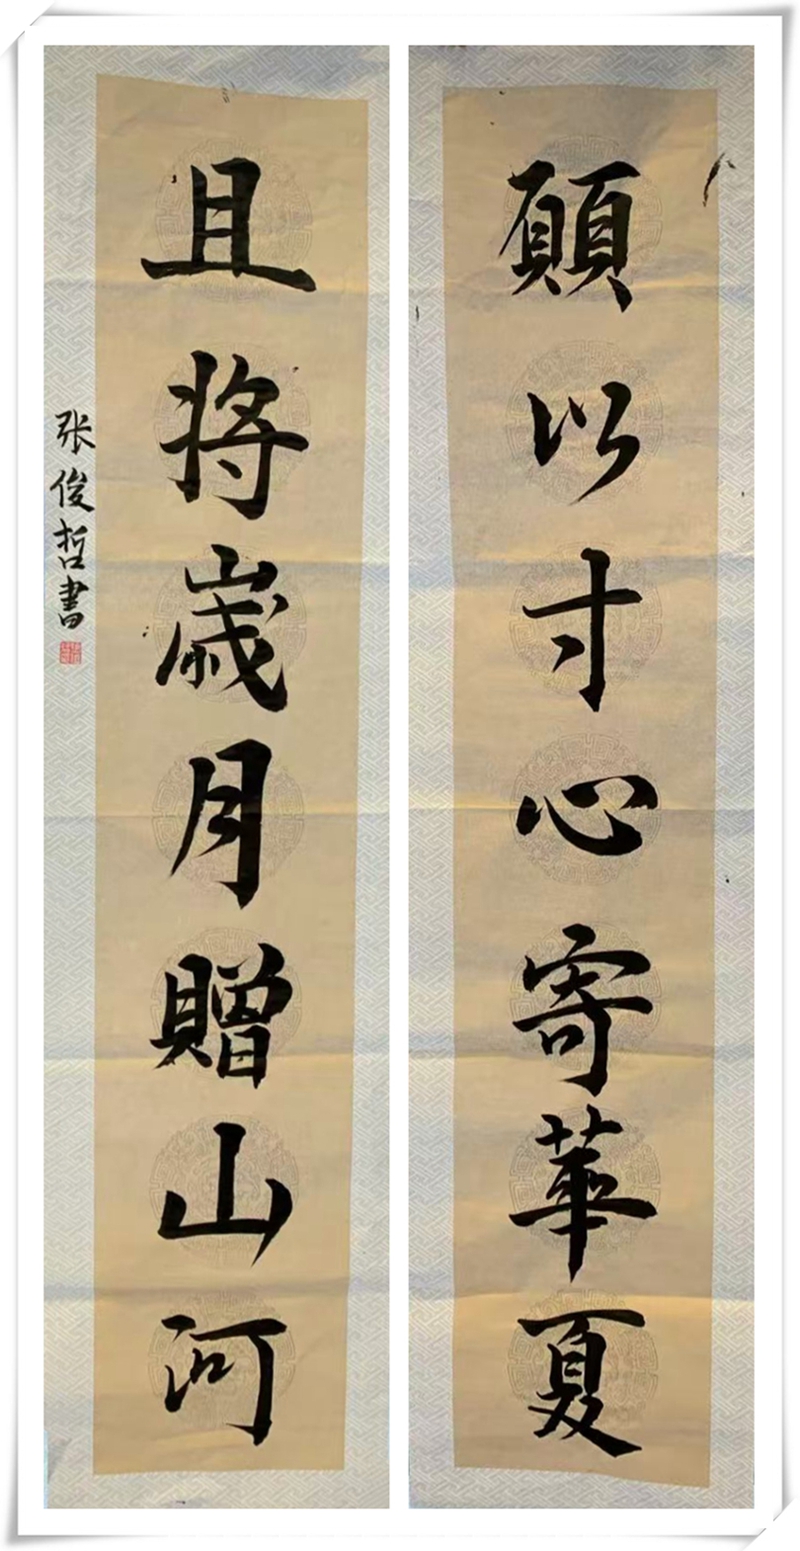 願以寸心寄華夏
且将歲月贈山河
张俊哲書